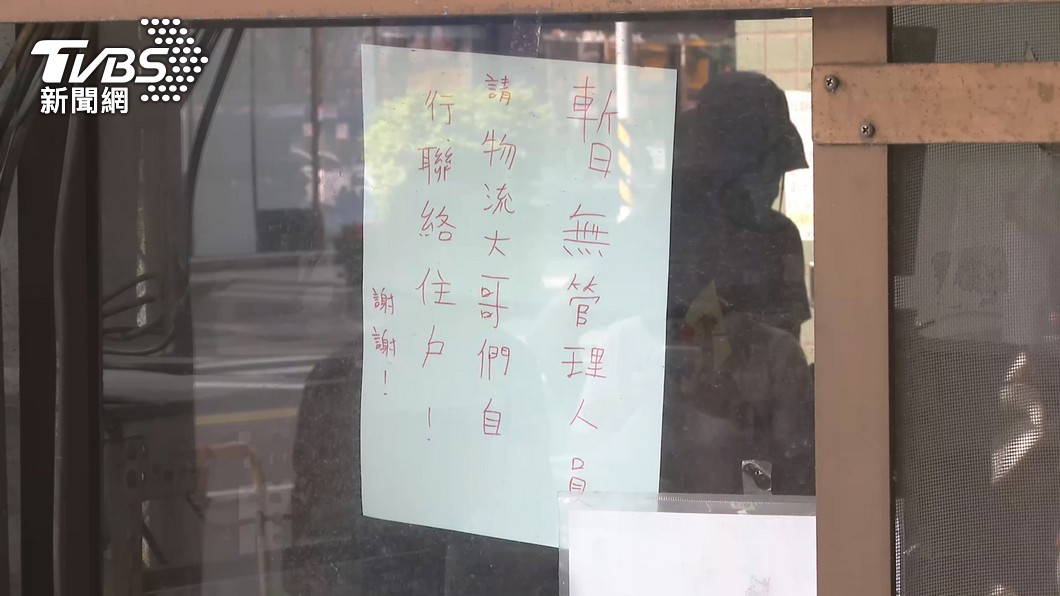 TVBS
新聞網
暫無管理人員
請物流大哥們自
行聯絡住戶!
謝謝!